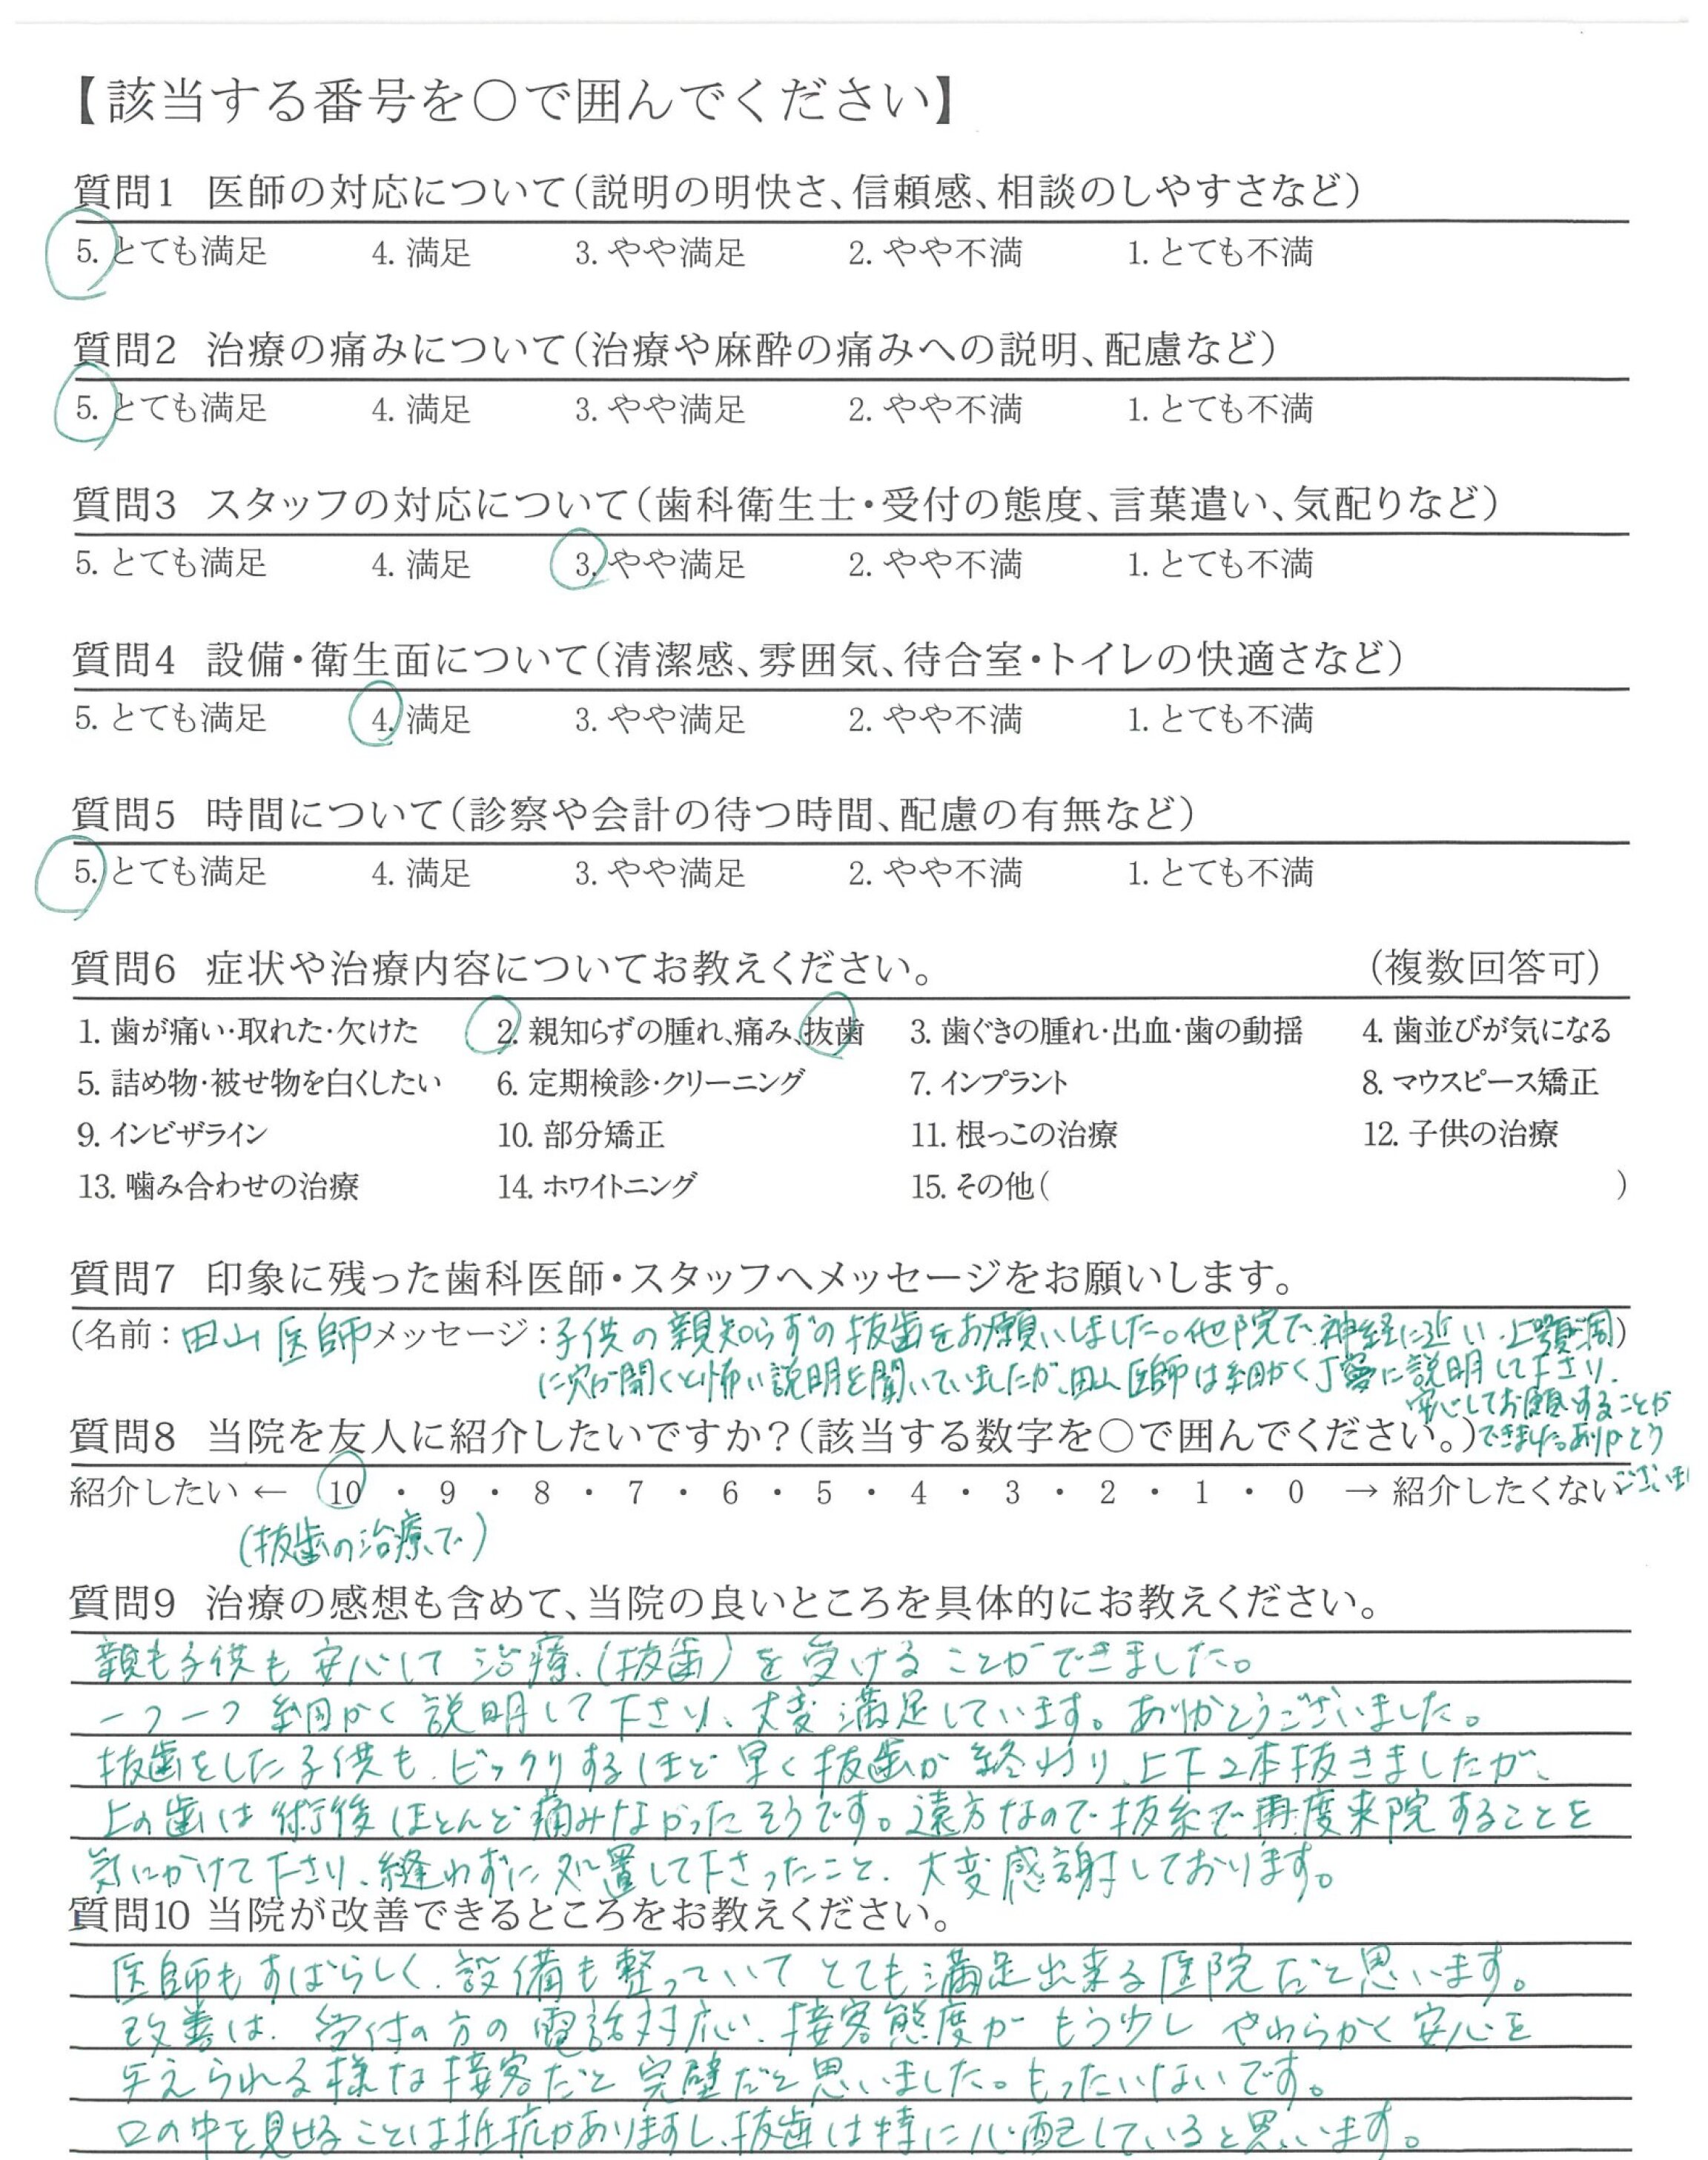 【該当する番号を○で囲んでください】
質問1 医師の対応について(説明の明快さ、信頼感、相談のしやすさなど)
5. とても満足 4. 満足 3. やや満足 2. やや不満 1. とても不満
質問2 治療の痛みについて(治療や麻酔の痛みへの説明、配慮など)
5. とても満足 4. 満足 3. やや満足 2. やや不満 1. とても不満
質問3 スタッフの対応について(歯科衛生士・受付の態度、言葉遣い、気配りなど)
5. とても満足 4. 満足 3. やや満足 2. やや不満 1. とても不満
質問4 設備・衛生面について(清潔感、雰囲気、待合室・トイレの快適さなど)
5. とても満足 4. 満足 3. やや満足 2. やや不満 1. とても不満
質問5 時間について(診察や会計の待つ時間、配慮の有無など)
5. とても満足 4. 満足 3. やや満足 2. やや不満 1. とても不満
質問6 症状や治療内容についてお教えください。 (複数回答可)
1. 歯が痛い・取れた・欠けた 2. 親知らずの腫れ、痛み、抜歯 3. 歯ぐきの腫れ・出血・歯の動揺 4. 歯並びが気になる
5. 詰め物・被せ物を白くしたい 6. 定期検診・クリーニング 7. インプラント 8. マウスピース矯正
9. インビザライン 10. 部分矯正 11. 根っこの治療 12. 子供の治療
13. 噛み合わせの治療 14. ホワイトニング 15. その他( )
質問7 印象に残った歯科医師・スタッフへメッセージをお願いします。
(名前:田山医師 メッセージ:子供の親知らずの抜歯をお願いしました。他院で神経に近い、上顎洞)
に穴が開くと怖い説明を聞いていましたが、田山医師は細かく丁寧に説明して下さり、
安心してお願いすることが
できました。ありがとう
ございま
質問8 当院を友人に紹介したいですか?(該当する数字を○で囲んでください。)
紹介したい ← 10 ・ 9 ・ 8 ・ 7 ・ 6 ・ 5 ・ 4 ・ 3 ・ 2 ・ 1 ・ 0 → 紹介したくない
(抜歯の治療で)
質問9 治療の感想も含めて、当院の良いところを具体的にお教えください。
親も子供も安心して治療(抜歯)を受けることができました。
一つ一つ細かく説明して下さり、大変満足しています。ありがとうございました。
抜歯をした子供も、ビックリするほど早く抜歯が終わり、上下2本抜きましたが、
上の歯は術後ほとんど痛みなかったそうです。遠方なので抜糸で再度来院することを
気にかけて下さり、縫わずに処置して下さったこと、大変感謝しております。
質問10 当院が改善できるところをお教えください。
医師もすばらしく、設備も整っていてとても満足出来る医院だと思います。
改善は、受付の方の電話対応い、接客態度がもう少しやわらかく安心を
与えられる様な接客だと完璧だと思いました。もったいないです。
口の中を見せることは抵抗がありますし、抜歯は特に心配していると思います。